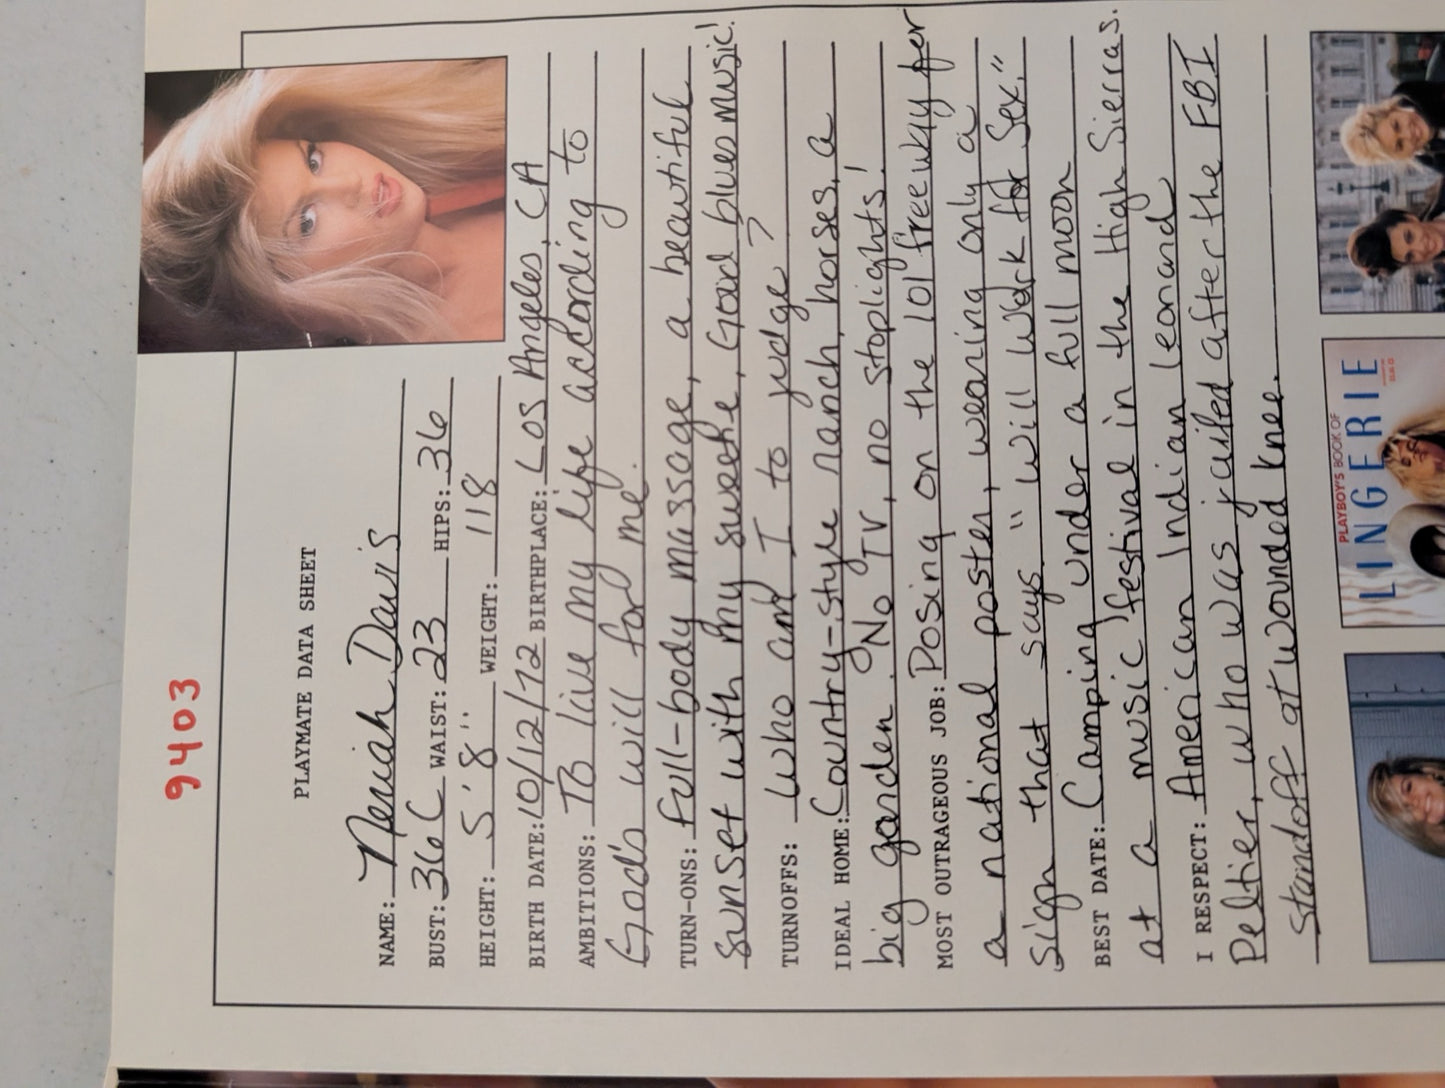 9403
PLAYMATE DATA SHEET
NAME: Neriah Davis
BUST: 36C WAIST: 23 HIPS: 36
HEIGHT: 5'8" WEIGHT: 118
BIRTH DATE: 10/12/72 BIRTHPLACE: Los Angeles, CA
AMBITIONS: To live my life according to
God's will for me.
TURN-ONS: full-body massage, a beautiful
sunset with my sweetie, Good blues music!
TURNOFFS: Who am I to judge?
IDEAL HOME: Country-style ranch, horses, a
big garden. No TV, no stoplights!
MOST OUTRAGEOUS JOB: Posing on the 101 freeway for
a national poster, wearing only a
sign that says "will work for Sex."
BEST DATE: Camping under a full moon
at a music festival in the High Sierras.
I RESPECT: American Indian leonard
Peltier, who was jailed after the FBI
standoff at wounded knee.
PLAYBOY'S BOOK OF
LINGERIE